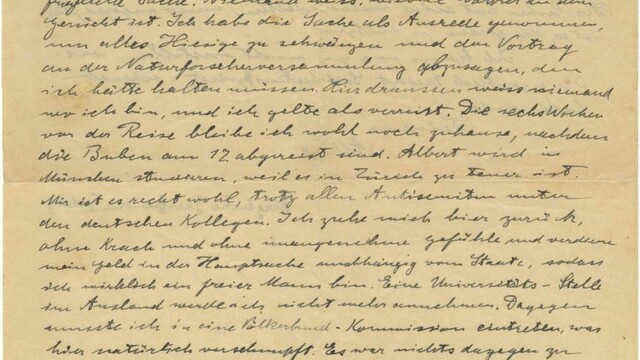 Sache. Niemand weiss, wieviel
Gerücht ist. Ich habe die Sache als Ausrede genommen,
um alles Hiesige zu schwänzen und den Vortrag
an der Naturforscherversammlung abzusagen, den
ich hätte halten müssen. Hier draussen weiss niemand
wo ich bin, und ich gelte als verreist. Die sechs Wochen
vor der Reise bleibe ich wohl noch zuhause, nachdem
die Buben am 17 abgereist sind. Albert wird in
München studieren, weil es in Zürich zu teuer ist.
Mir ist es recht wohl, trotz allen Antisemiten unter
den deutschen Kollegen. Ich ziehe mich hier zurück,
ohne Krach und ohne unangenehme Gefühle und verdiene
mein Geld in der Hauptsache unabhängig vom Staate, sodass
ich wirklich ein freier Mann bin. Eine Universitäts-Stelle
im Ausland werde ich nicht mehr annehmen. Dagegen
musste ich in eine Völkerbund-Kommission eintreten, was
hier natürlich verschnupft. Es war nichts dagegen zu